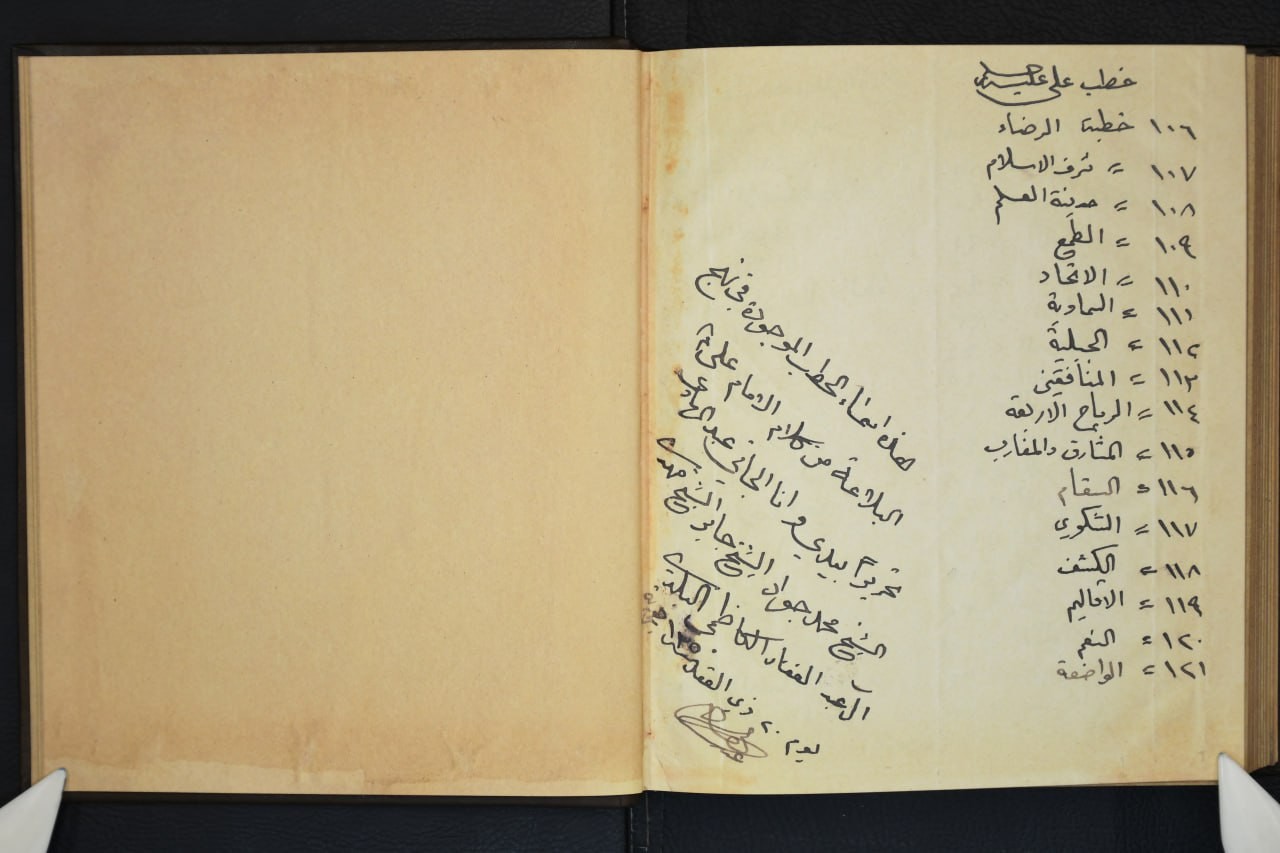 خطب على عليه السلام
١٠٦ خطبة الرضاء
١٠٧ = شرف الاسلام
١٠٨ = مدينة العلم
١٠٩ = الطمع
١١٠ = الاتحاد
١١١ = السماوية
١١٢ = الجبلية
١١٣ = المنافقين
١١٤ = الرياح الاربعة
١١٥ = المشارق والمغارب
١١٦ = السقام
١١٧ = الشكوى
١١٨ = الكشف
١١٩ = الاقاليم
١٢٠ = النعم
١٢١ = الواضعة
هذه اسماء الخطب الموجودة في نهج
البلاغة من كلام الامام علي ع
بيدي وانا الجاني عبد الهادي
الشيخ محمد جواد الشيخ جابر الشيخ مهدي
ال عبد الغفار الكاظمي
يوم ٢٠ ذي القعدة